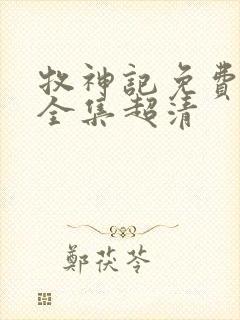 牧神記免費
全集超清
鄭茯苓